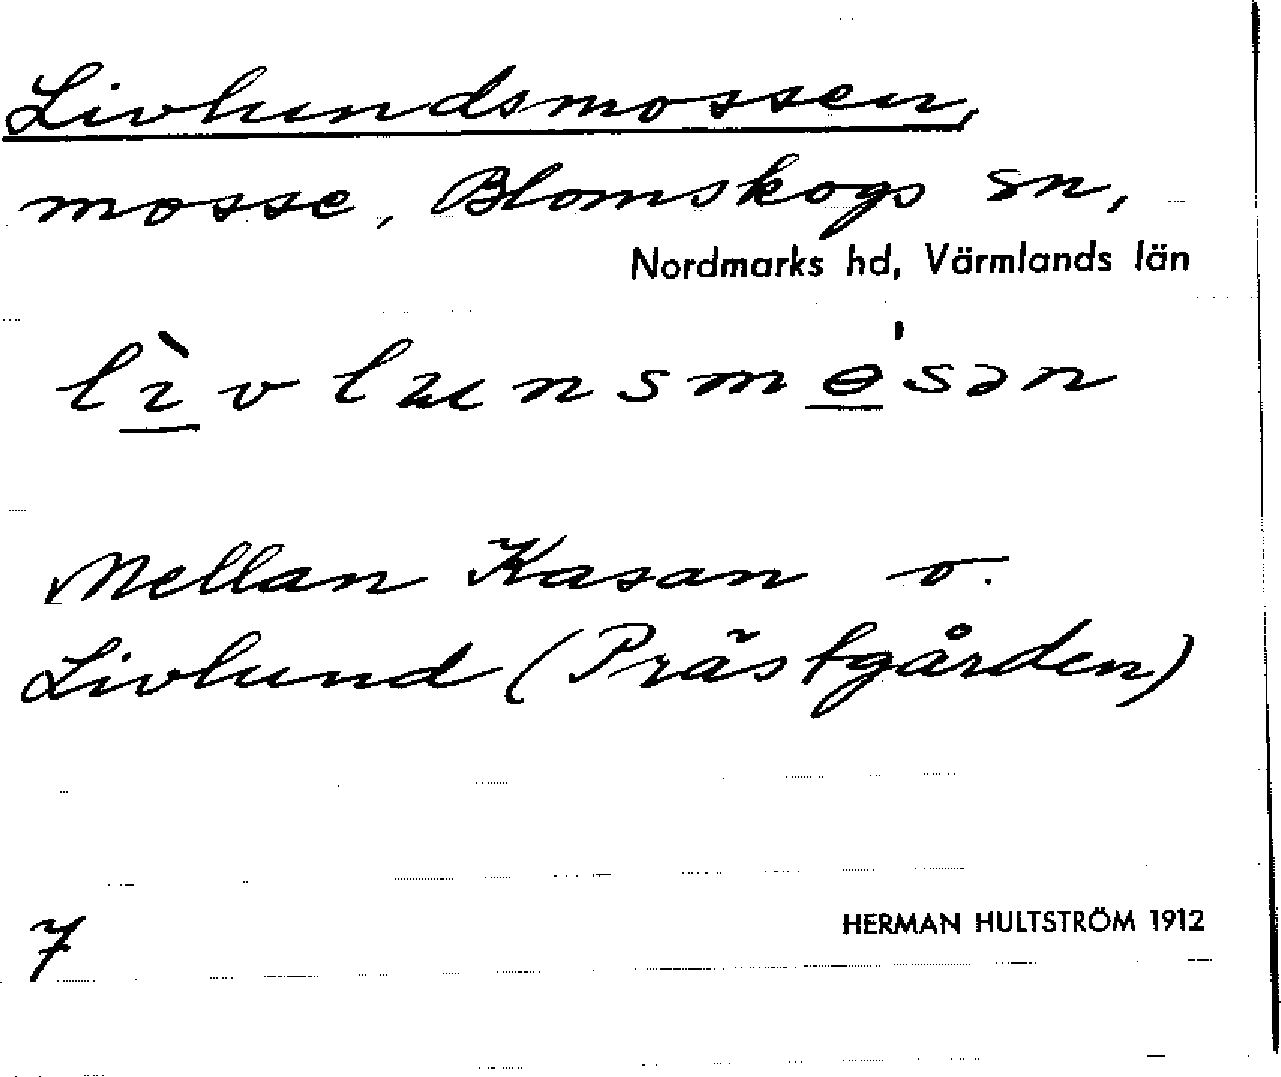 Livlundsmossen,
mosse, Blomskogs sn,
Nordmarks hd, Värmlands län
Mellan Kasan o.
Livlund (Prästgården)
7
HERMAN HULTSTRÖM 1912